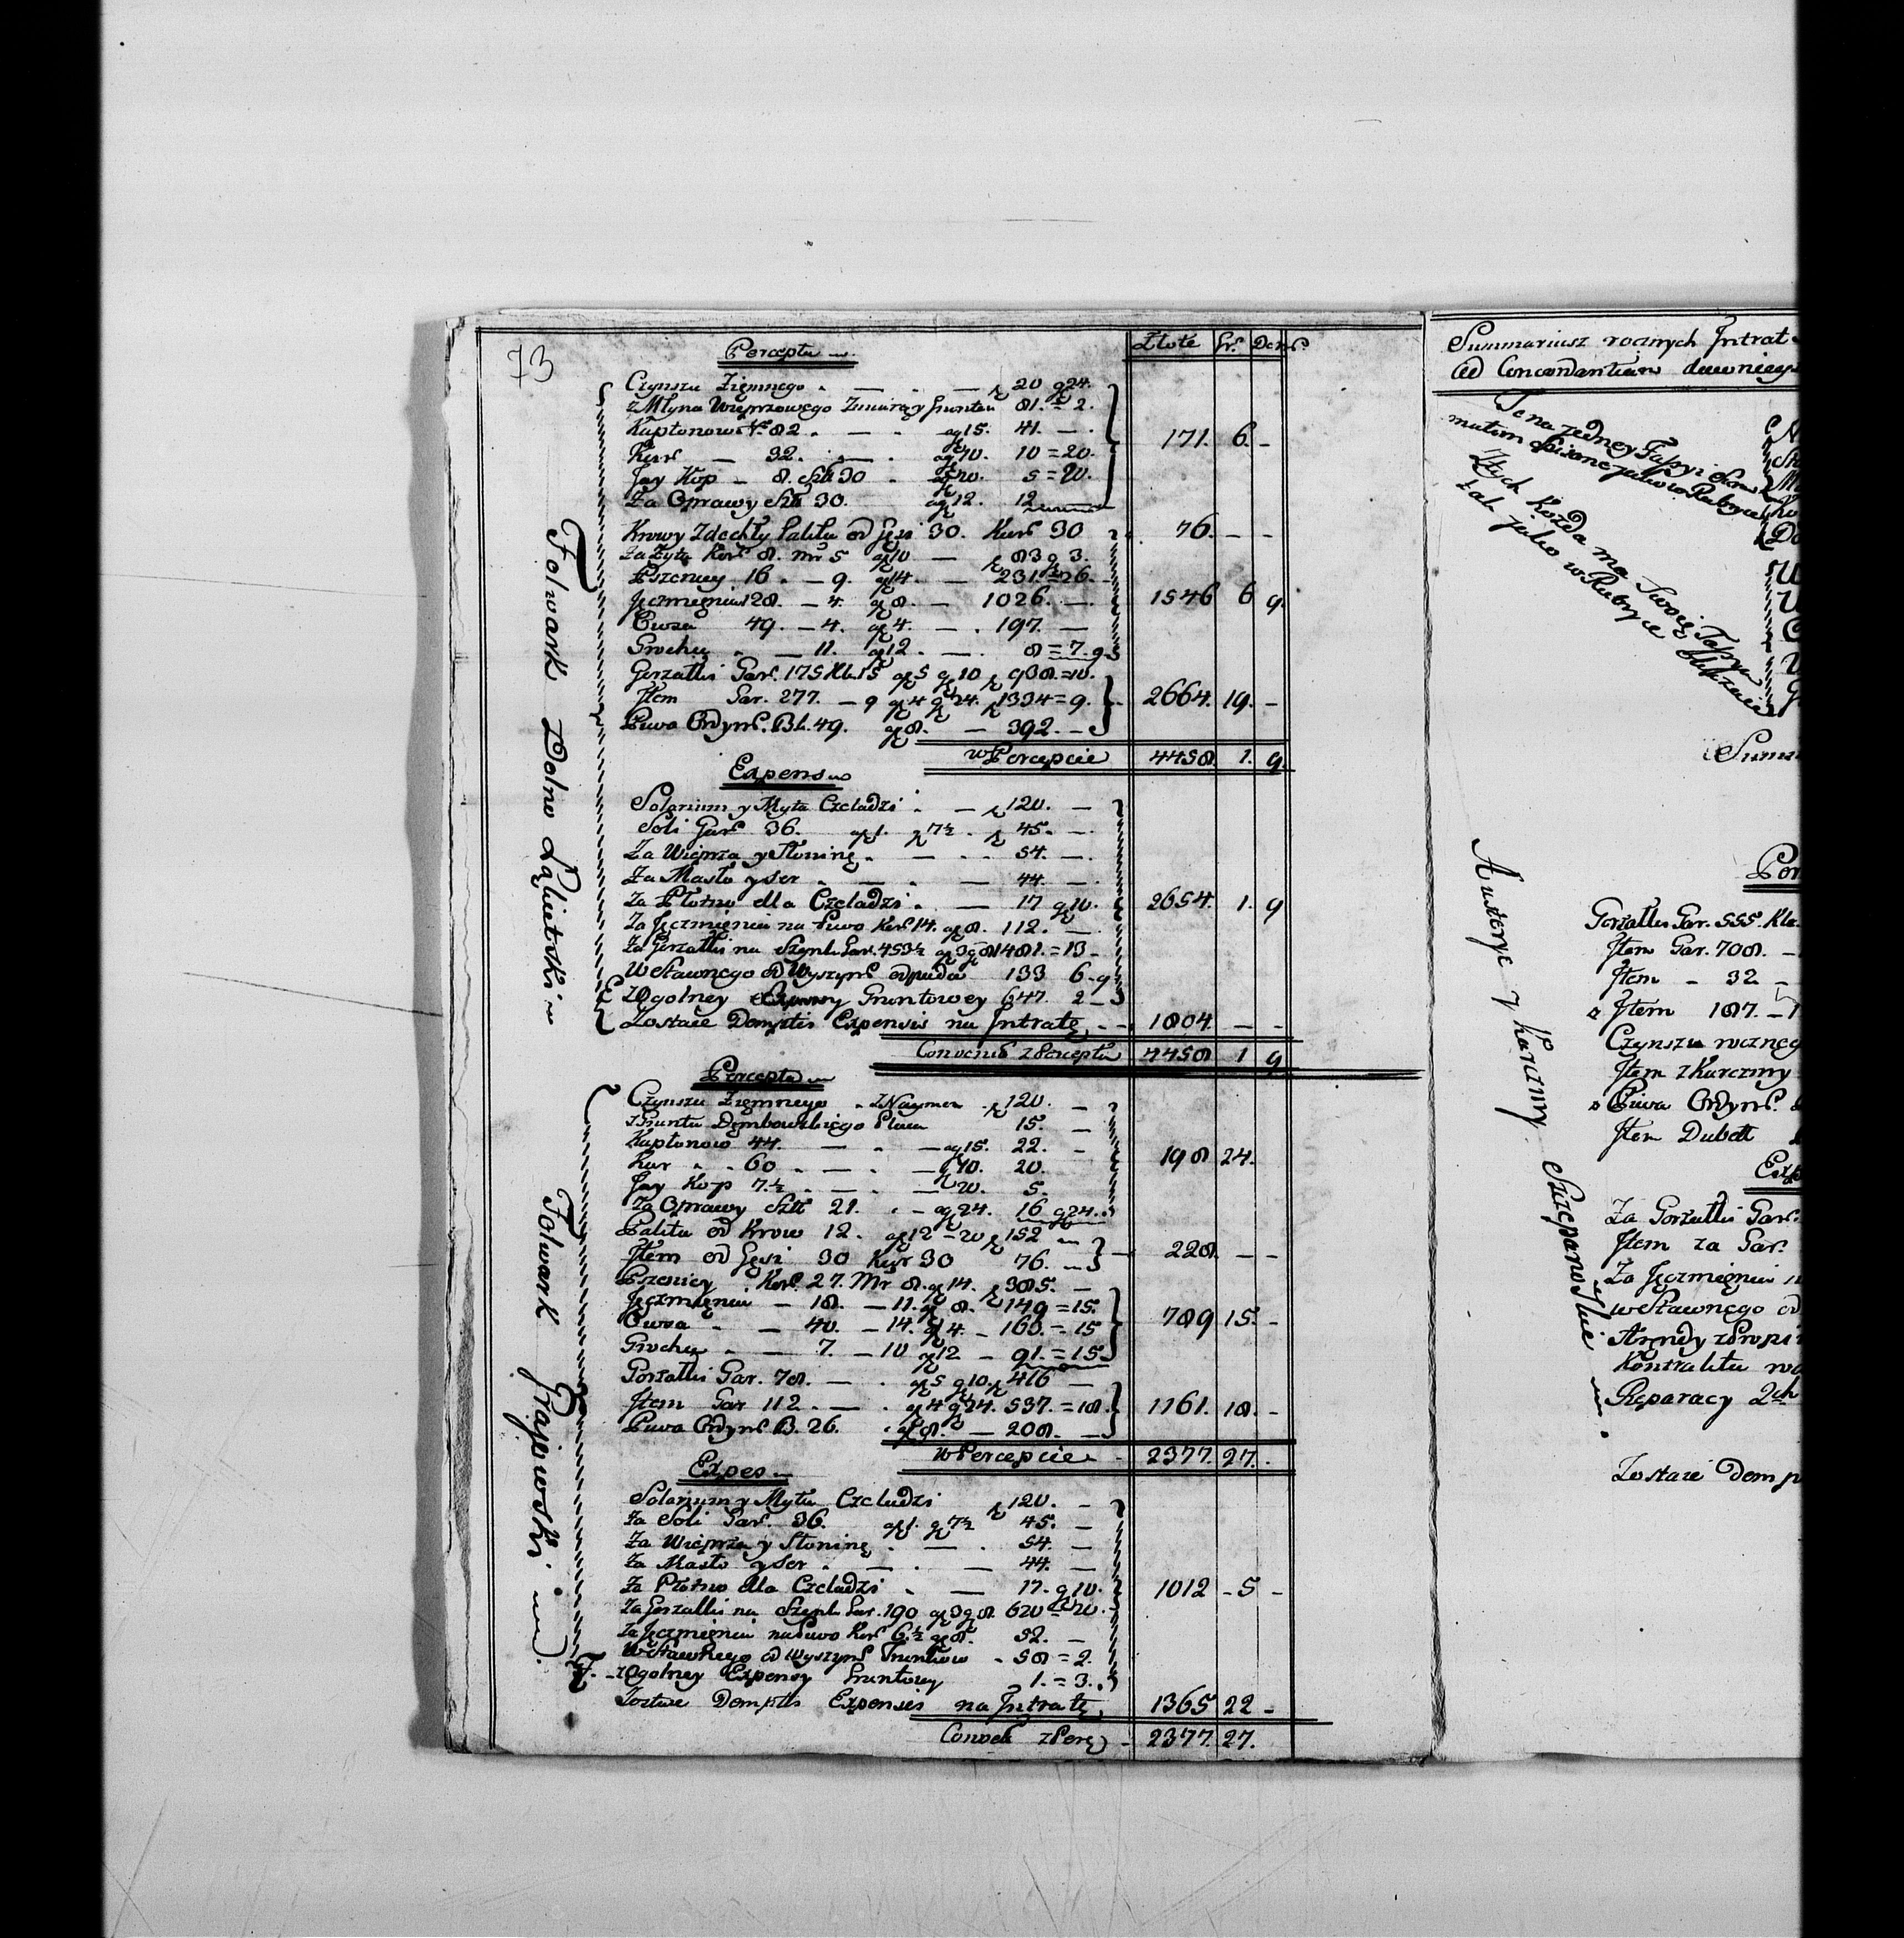 73
Percepta
Złote Gr. Den.
Czynszu Ziemnego . — . — zł 20 g 24.
z Młyna Wieprzowego Zmiara y Gruntu 81. = 2.
Kapłonow Nr 82 . — . ag 15. 41. —
Kur — 32. . — . ag 10. 10 = 20. 171. 6. –
Jay Kop — 8. Szt 30 . 20. 5 = 20.
Za Oprawy Szt 30. ag 12. 12
Krowy Zdechły od Gęsi 30. Kur 30 76. – –
za Żyta Kor. 8. mr 5 a 10 — 83 g 3.
Pszenicy 16 . — 9. a 14. — 231. = 26.
Jęczmienia 128. — 4. a 8. — 1026. — 1546 6 9.
Owsa 49. — 4. a 4. — . 197. —
Grochu . — 11. a 12 . — . 8 = 7. 9
Gorzałki Gar. 175 Kl. 15 a 5 g 10 938. = 10.
Item Gar. 277. — 9 a 4 g 24. 1334 = 9. 2664. 19. –
Piwa Ordyn. B. 49. a 8. — 392. –
w Percepcie 4458 1. 9.
Expens
Solarium y Myta Czeladzi . — 120. —
Soli Gar. 36. a 1. g 7½ . 45. —
Za Wieprza y Słoninę . — . . 54. —
Za Masło y Ser . — . — 44. —
Za Płótno dla Czeladzi . — 17 g 10. 2654. 1. 9
Za Jęczmienia na Piwo Kor. 14. a 8. 112. —
Za Gorzałki na Szynk Gar. 453½ a 3 g 8 1481. = 13 –
Wstawnego od Wyszyn. odpada 133 6. 9
z Ogolney Gruntowey 647. 2 –
Zostaie Demptis Expensis na Intratę . – 1804. — –
Convenit z Perceptą 4458 1 9
Folwark Dolno Łąkietski
Percepta
Czynszu Ziemnego . z Naymu . 120. —
z Gruntu Dembowskiego Placu 15. —
Kapłonow 44. — . — ag 15. 22. –
Kur . . 60 . — . — 10. 20. 198 24.
Jay Kop 7.½ . — . — 20. 5.
Za Oprawy Szt 21. . – ag 24. 16 g 24.
od Krow 12. a 12 – 20 152
Item od Gęsi 30 Kur 30 76. 228. — –
Pszenicy Kor. 27. Mr 8. a 14. 385. —
Jęczmienia — 18. — 11. a 8. 149 = 15.
Owsa . — 40. — 14. a 4. – 163. = 15 789 15. –
Grochu . — 7. — 10 a 12 – 91. = 15
Gorzałki Gar. 78. — . a 5 g 10. 416 —
Item Gar 112 . — . a 4 g 24. 537. = 18. 1161. 18. –
Piwa Ordyn. B. 26. . a 8. — 208. —
w Percepcie 2377. 27. .
Expes
Solarium y Myta Czeladzi 120. –
za Soli Gar. 36. a 1. g 7½ 45. —
Za Wieprza y Słoninę . — . 54. —
za Masło y Ser . — . — 44. —
Za Płótno dla Czeladzi . — 17. g 10. 1012 – 5 –
Za Gorzałki na Szynk Gar. 190 a 3 g 8. 620 = 20.
za Jęczmienia na Piwo Kor. 6.½ a 8. 52. —
Wstawnego od Wyszyn. Trunkow . 58 = 2.
z Ogolney Expensy Gruntowy 1. = 3.
Zostaie Demptis Expensis na Intratę 1365 22 –
Convenit z Perc. – 2377. 27.
Folwark Grajewski
Summariusz rocznych Intrat
Ad Concordantiam dawniey
Te na jedney Tapyi
Tych Każda ma Swoię Tapyą
tak jako w Rubryce
Summ
Austerye y Karczmy Szczepanowskie
Gorzałki Gar. 555. Kl.
Item Gar. 708. –
Item – 32 –
Item 187. – 1
Czynszu roczneg
Item z Karczmy
Piwa Ordyn.
Item Dubelt
Exp
Za Gorzałki Gar.
Item za Gar.
Za Jęczmienia n
Wstawnego od
Arendy z Propi
Kontraktu ro
Reparacy 2ch
Zostaie Demp